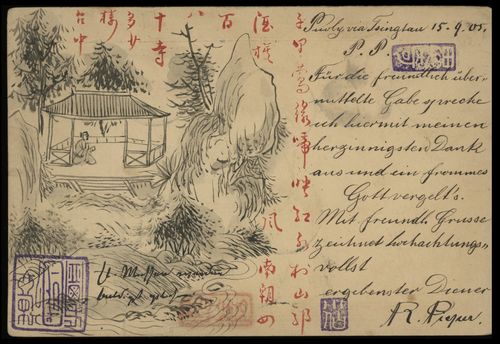 Puoly via Tsingtau 15.9.05.
P. P.
Für die freundlich über-
mittelte Gabe spreche
ich hiermit meinen
herzinnigsten Dank
aus und ein frommes
Gott vergelt's.
Mit freundl. Grusse
zeichnet hochachtungs-
vollst
ergebenster Diener
R. Pieper.
千里鶯綠啼映紅水村山郭
酒旗風南朝四
百
八
十寺
多少
樓
台中